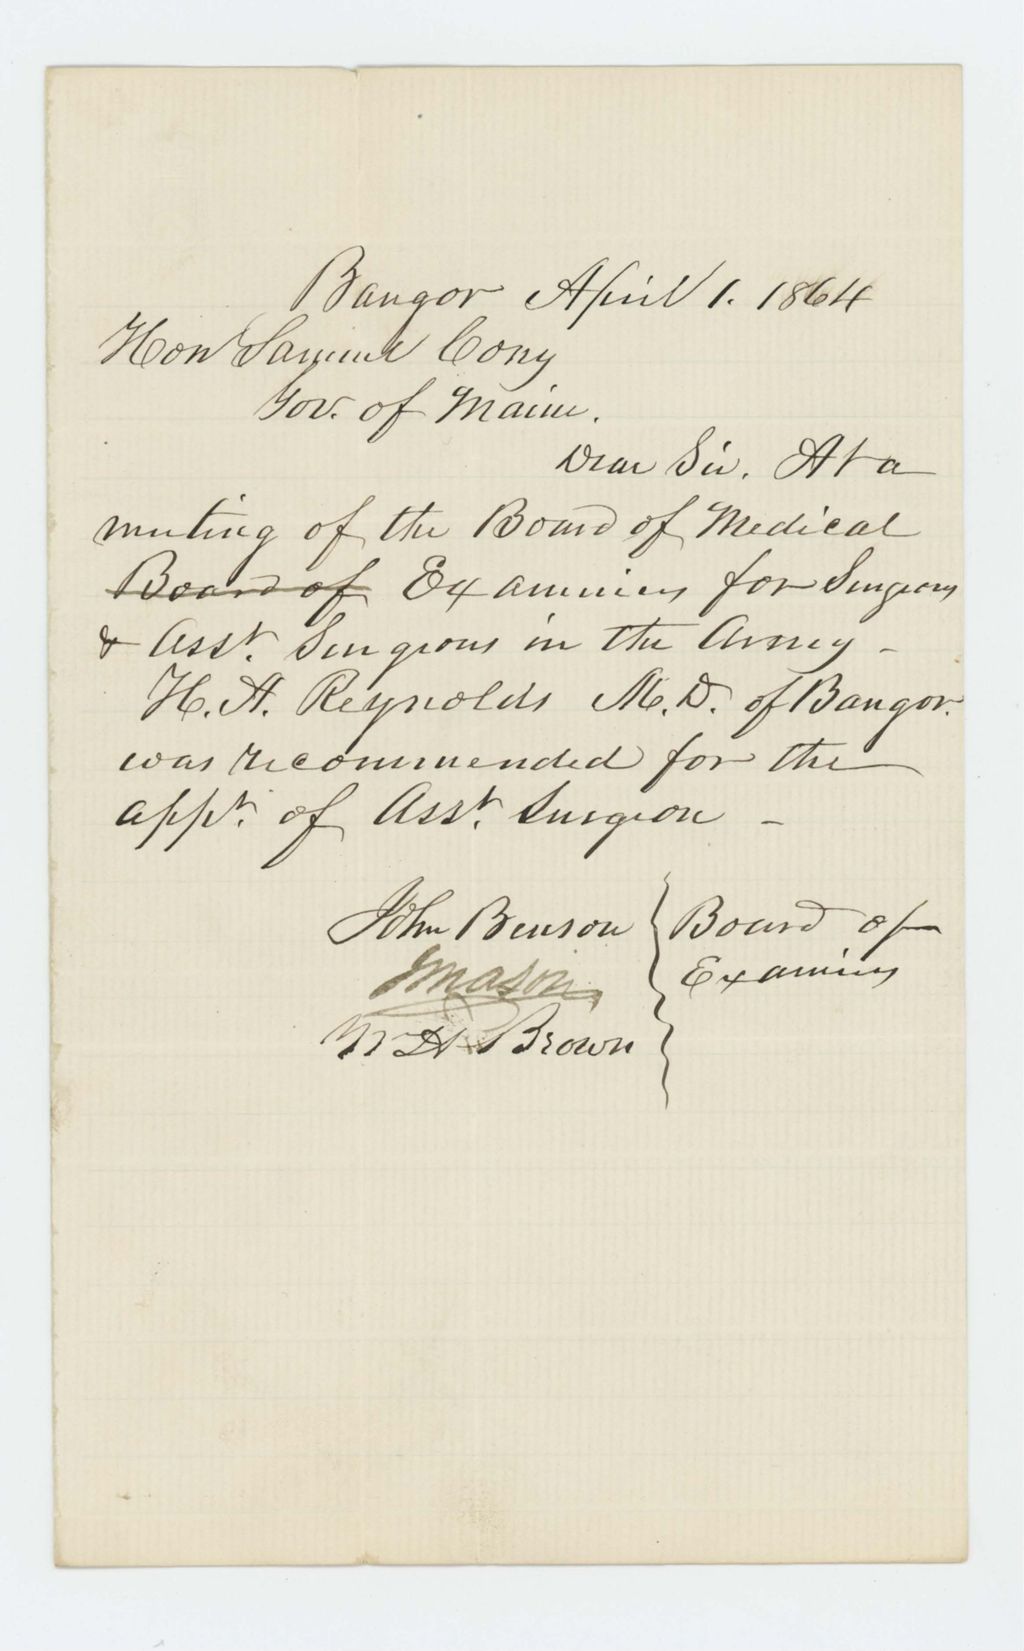 Bangor April 1. 1864
Hon Samuel Cony
Gov. of Maine.
Dear Sir. At a
meeting of the Board of Medical
Board of Examiners for Surgeons
& Asst. Surgeons in the Army -
H. A. Reynolds M. D. of Bangor.
was recommended for the
appt. of Asst. Surgeon -
John Benson } Board of
J Mason } Examiners
W H Brown }